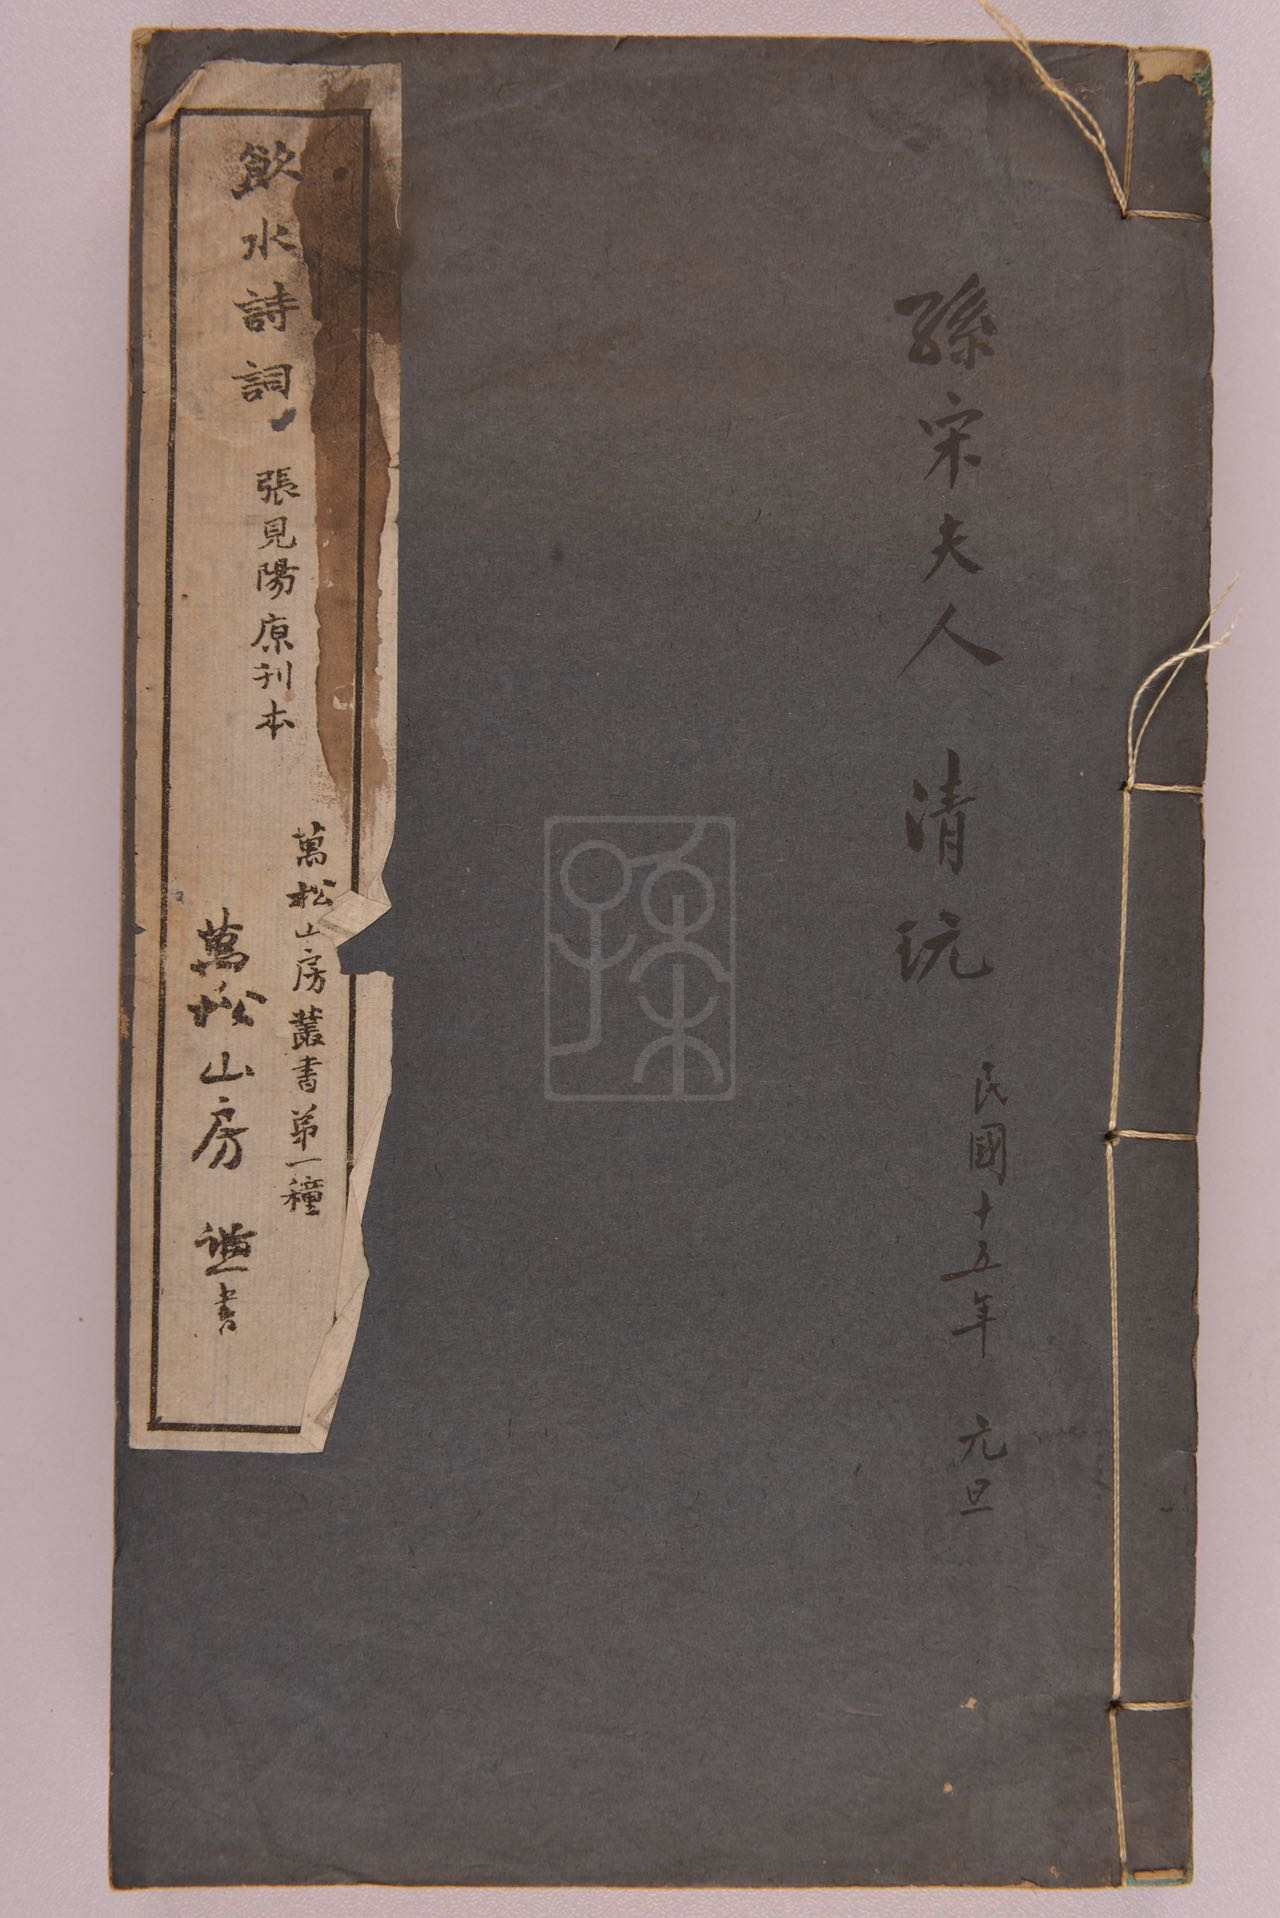 孫宋夫人清玩
民國十五年元旦
萬松山房叢書第一種
飲水詩詞
張見陽原刊本
萬松山房
書
孫